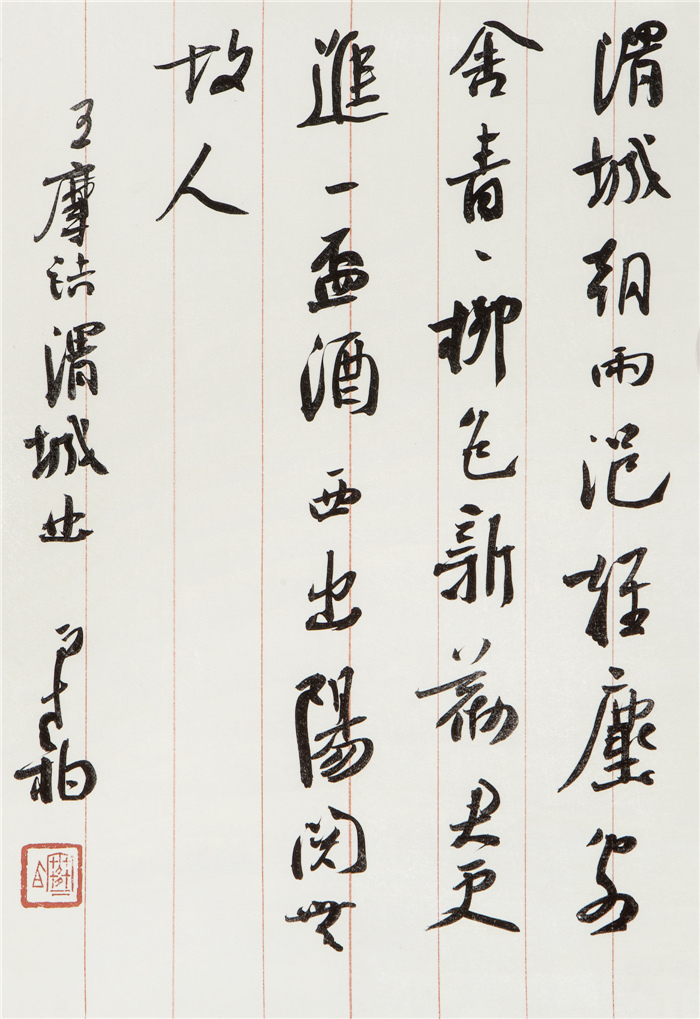 渭城朝雨浥輕塵客
舍青、柳色新勸君更
進一盃酒西出陽関無
故人
王摩詰渭城曲 柏